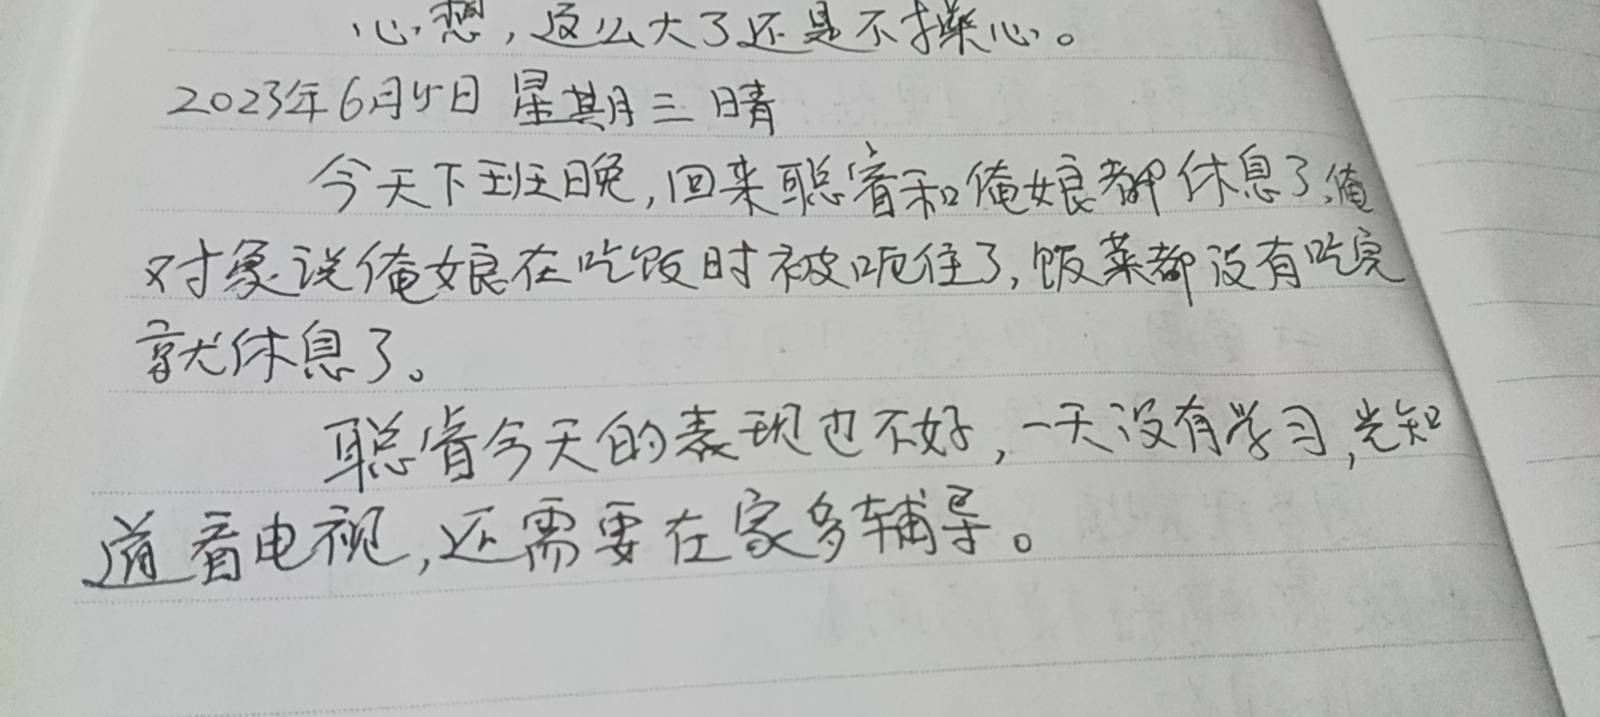 心想，这么大了还是不操心。
2023年6月5日 星期三 晴
今天下班晚，回来聪睿和俺娘都休息了，俺
对象说俺娘在吃饭时被呃住了，饭菜都没有吃完
就休息了。
聪睿今天的表现也不好，一天没有学习，光知
道看电视，还需要在家多辅导。